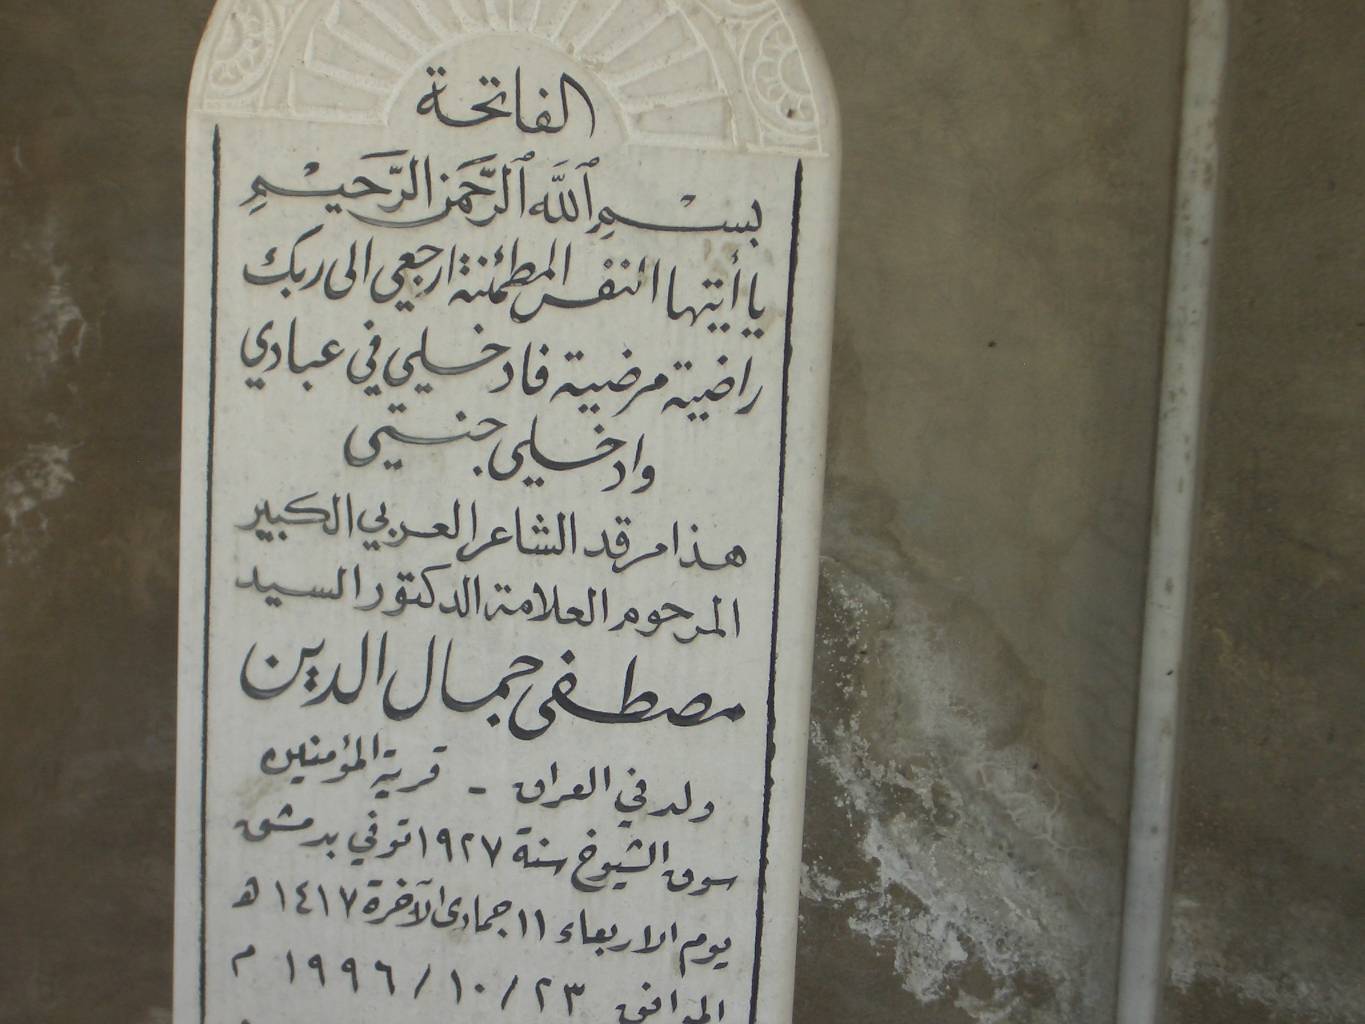 الفاتحة
بسم ٱلله ٱلرَّحمن الرَّحيم
يا أيتها النفس المطمئنة ارجعي الى ربك
راضية مرضية فادخلي في عبادي
وادخلي جنتي
هذا مرقد الشاعر العربي الكبير
المرحوم العلامة الدكتور السيد
مصطفى جمال الدين
ولد في العراق - قرية المؤمنين
سوق الشيوخ سنة ١٩٢٧ توفي بدمشق
يوم الاربعاء ١١ جمادى الآخرة ١٤١٧ هـ
الموافق ٢٣ / ١٠ / ١٩٩٦ م